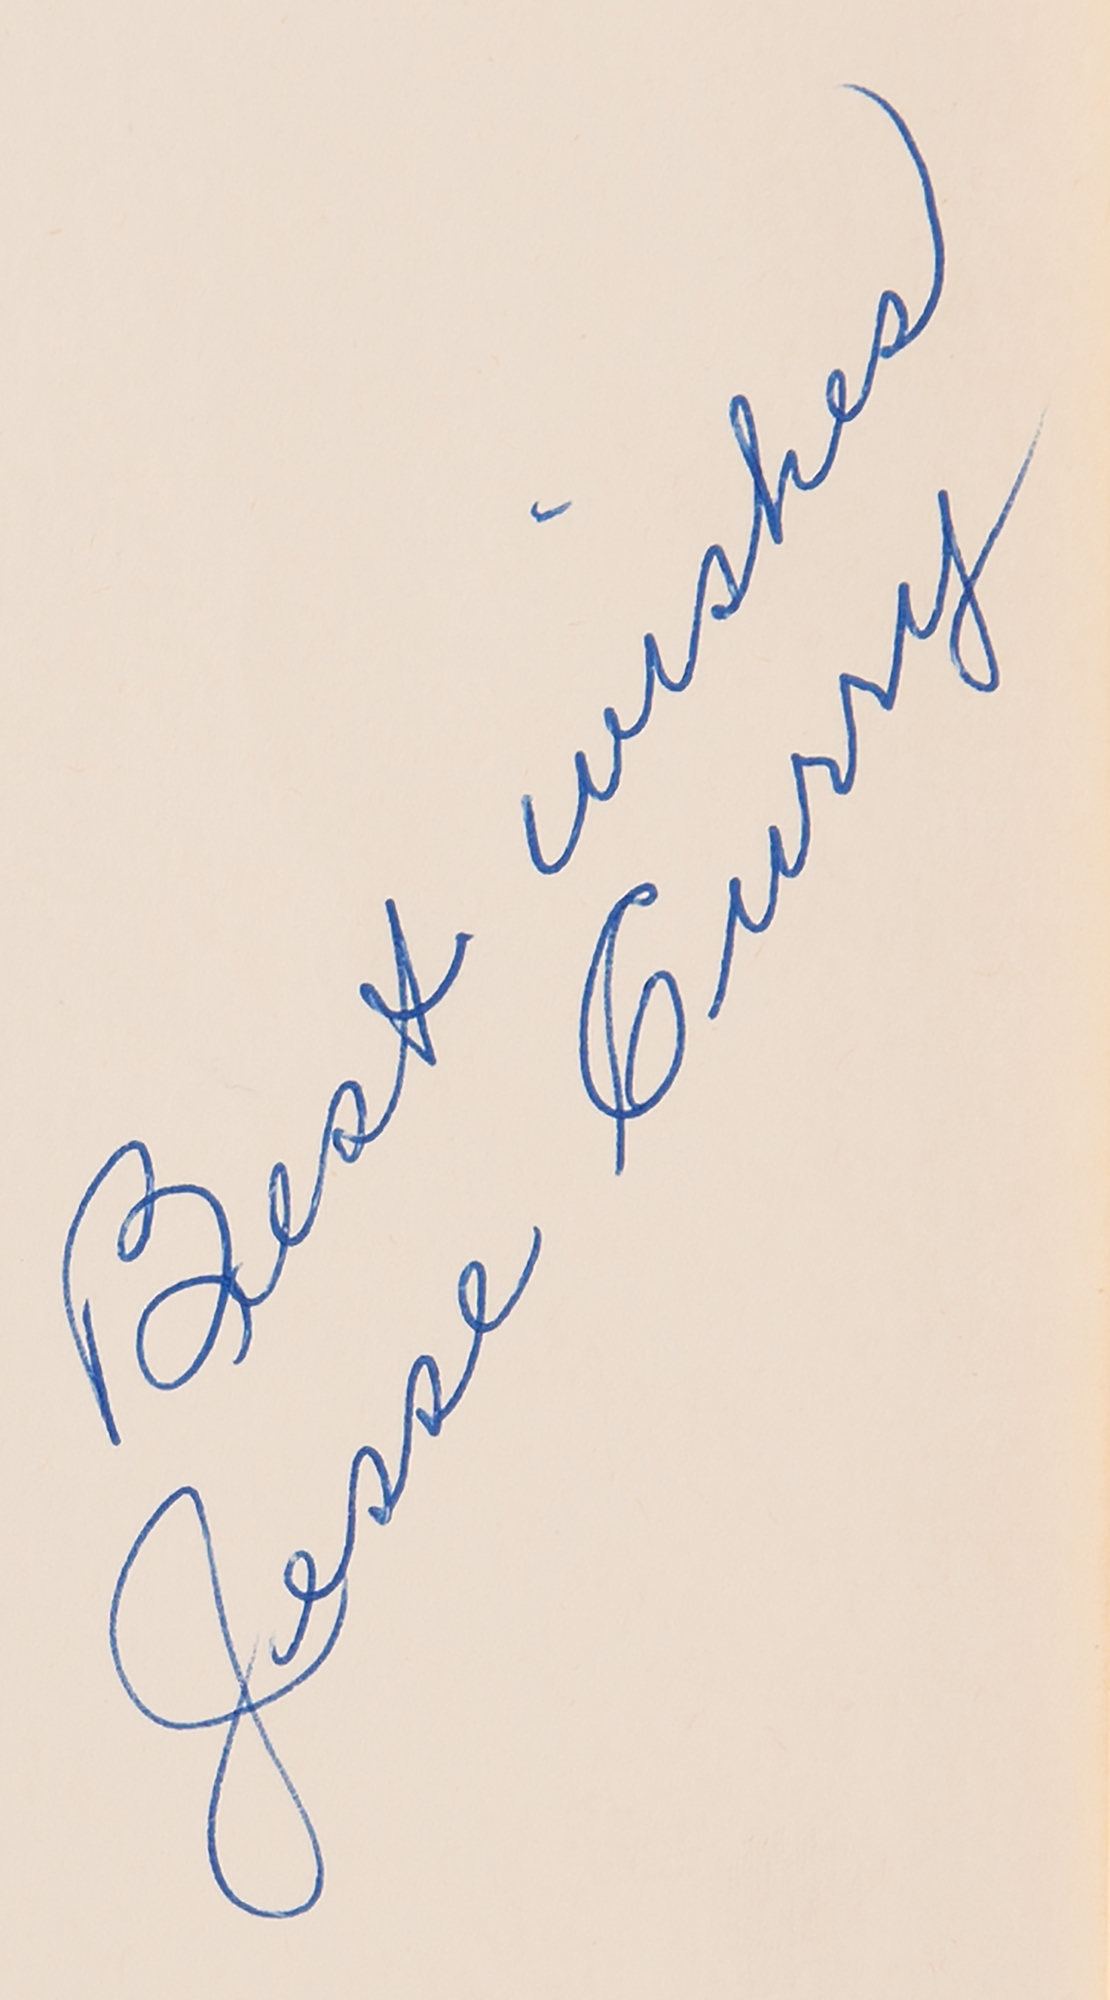 Best wishes
Jesse Curry